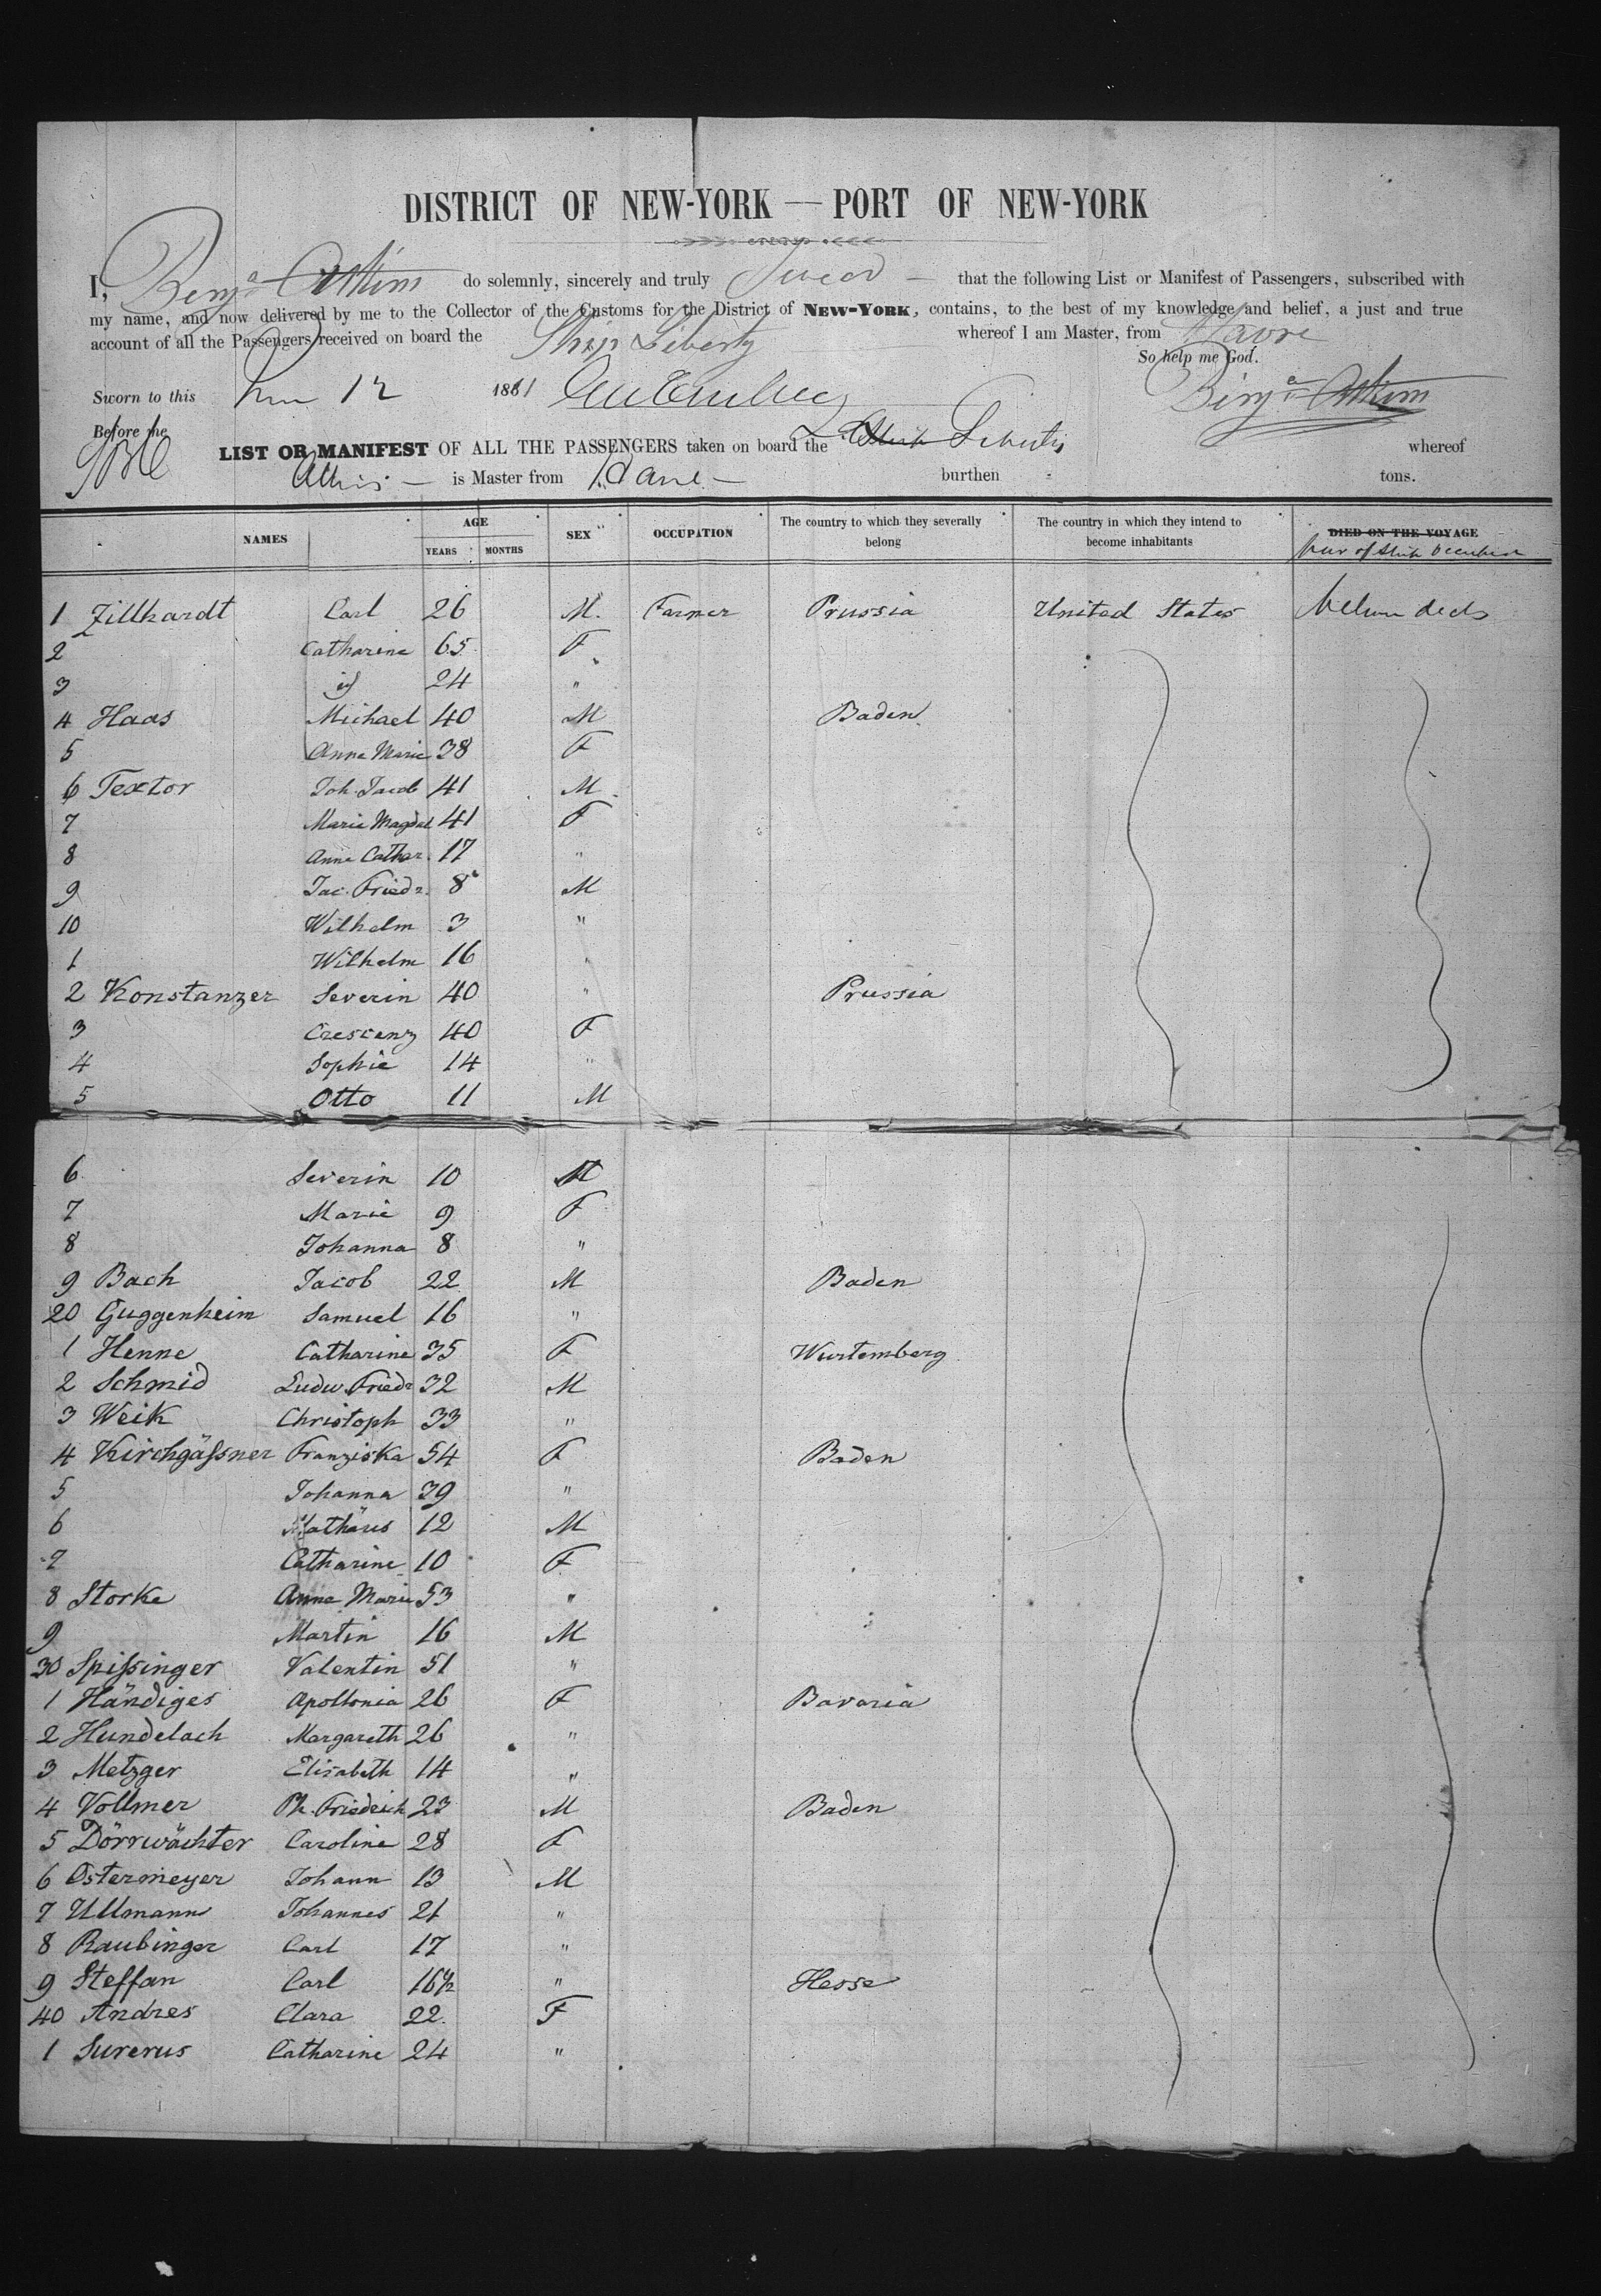 DISTRICT OF NEW-YORK — PORT OF NEW-YORK
I, Benj. Atkins do solemnly, sincerely and truly Swear that the following List or Manifest of Passengers, subscribed with
my name, and now delivered by me to the Collector of the Customs for the District of NEW-YORK, contains, to the best of my knowledge and belief, a just and true
account of all the Passengers received on board the Ship Liberty whereof I am Master, from Havre
So help me God.
Sworn to this 12 1861 Benj. Atkins
Before me
LIST OR MANIFEST OF ALL THE PASSENGERS taken on board the Ship Liberty whereof
Atkins is Master from Havre burthen tons.
NAMES AGE YEARS MONTHS SEX OCCUPATION The country to which they severally belong The country in which they intend to become inhabitants DIED ON THE VOYAGE
part of Ship occupied
1 Zillhardt Carl 26 M. Farmer Prussia United States between decks
2 Catharine 65 F
3 id 24 "
4 Haas Michael 40 M Baden
5 Anna Marie 38 F
6 Textor Joh. Jacob 41 M
7 Marie Magdal 41 F
8 Anna Cathar. 17 "
9 Jac. Friedr. 8 M
10 Wilhelm 3 "
1 Wilhelm 16 "
2 Konstanzer Severin 40 " Prussia
3 Crescenz 40 F
4 Sophie 14 "
5 Otto 11 M
6 Severin 10 M
7 Marie 9 F
8 Johanna 8 "
9 Bach Jacob 22 M Baden
20 Guggenheim Samuel 16 "
1 Henne Catharine 35 F Wurtemberg
2 Schmid Ludw. Friedr 32 M
3 Weik Christoph 33 "
4 Kirchgäſsner Franziska 54 F Baden
5 Johanna 39 "
6 Mathäus 12 M
7 Catharine 10 F
8 Storke Anna Marie 53 "
9 Martin 16 M
30 Spiſsinger Valentin 51 "
1 Händiges Apollonia 26 F Bavaria
2 Hundelach Margareth 26 "
3 Metzger Elisabeth 14 "
4 Vollmer Ph. Friedrich 23 M Baden
5 Dörrwächter Caroline 28 F
6 Ostermeyer Johann 13 M
7 Ullmann Johannes 21 "
8 Raubinger Carl 17 "
9 Steffan Carl 16½ " Hesse
40 Andres Clara 22 F
1 Surerus Catharine 24 "